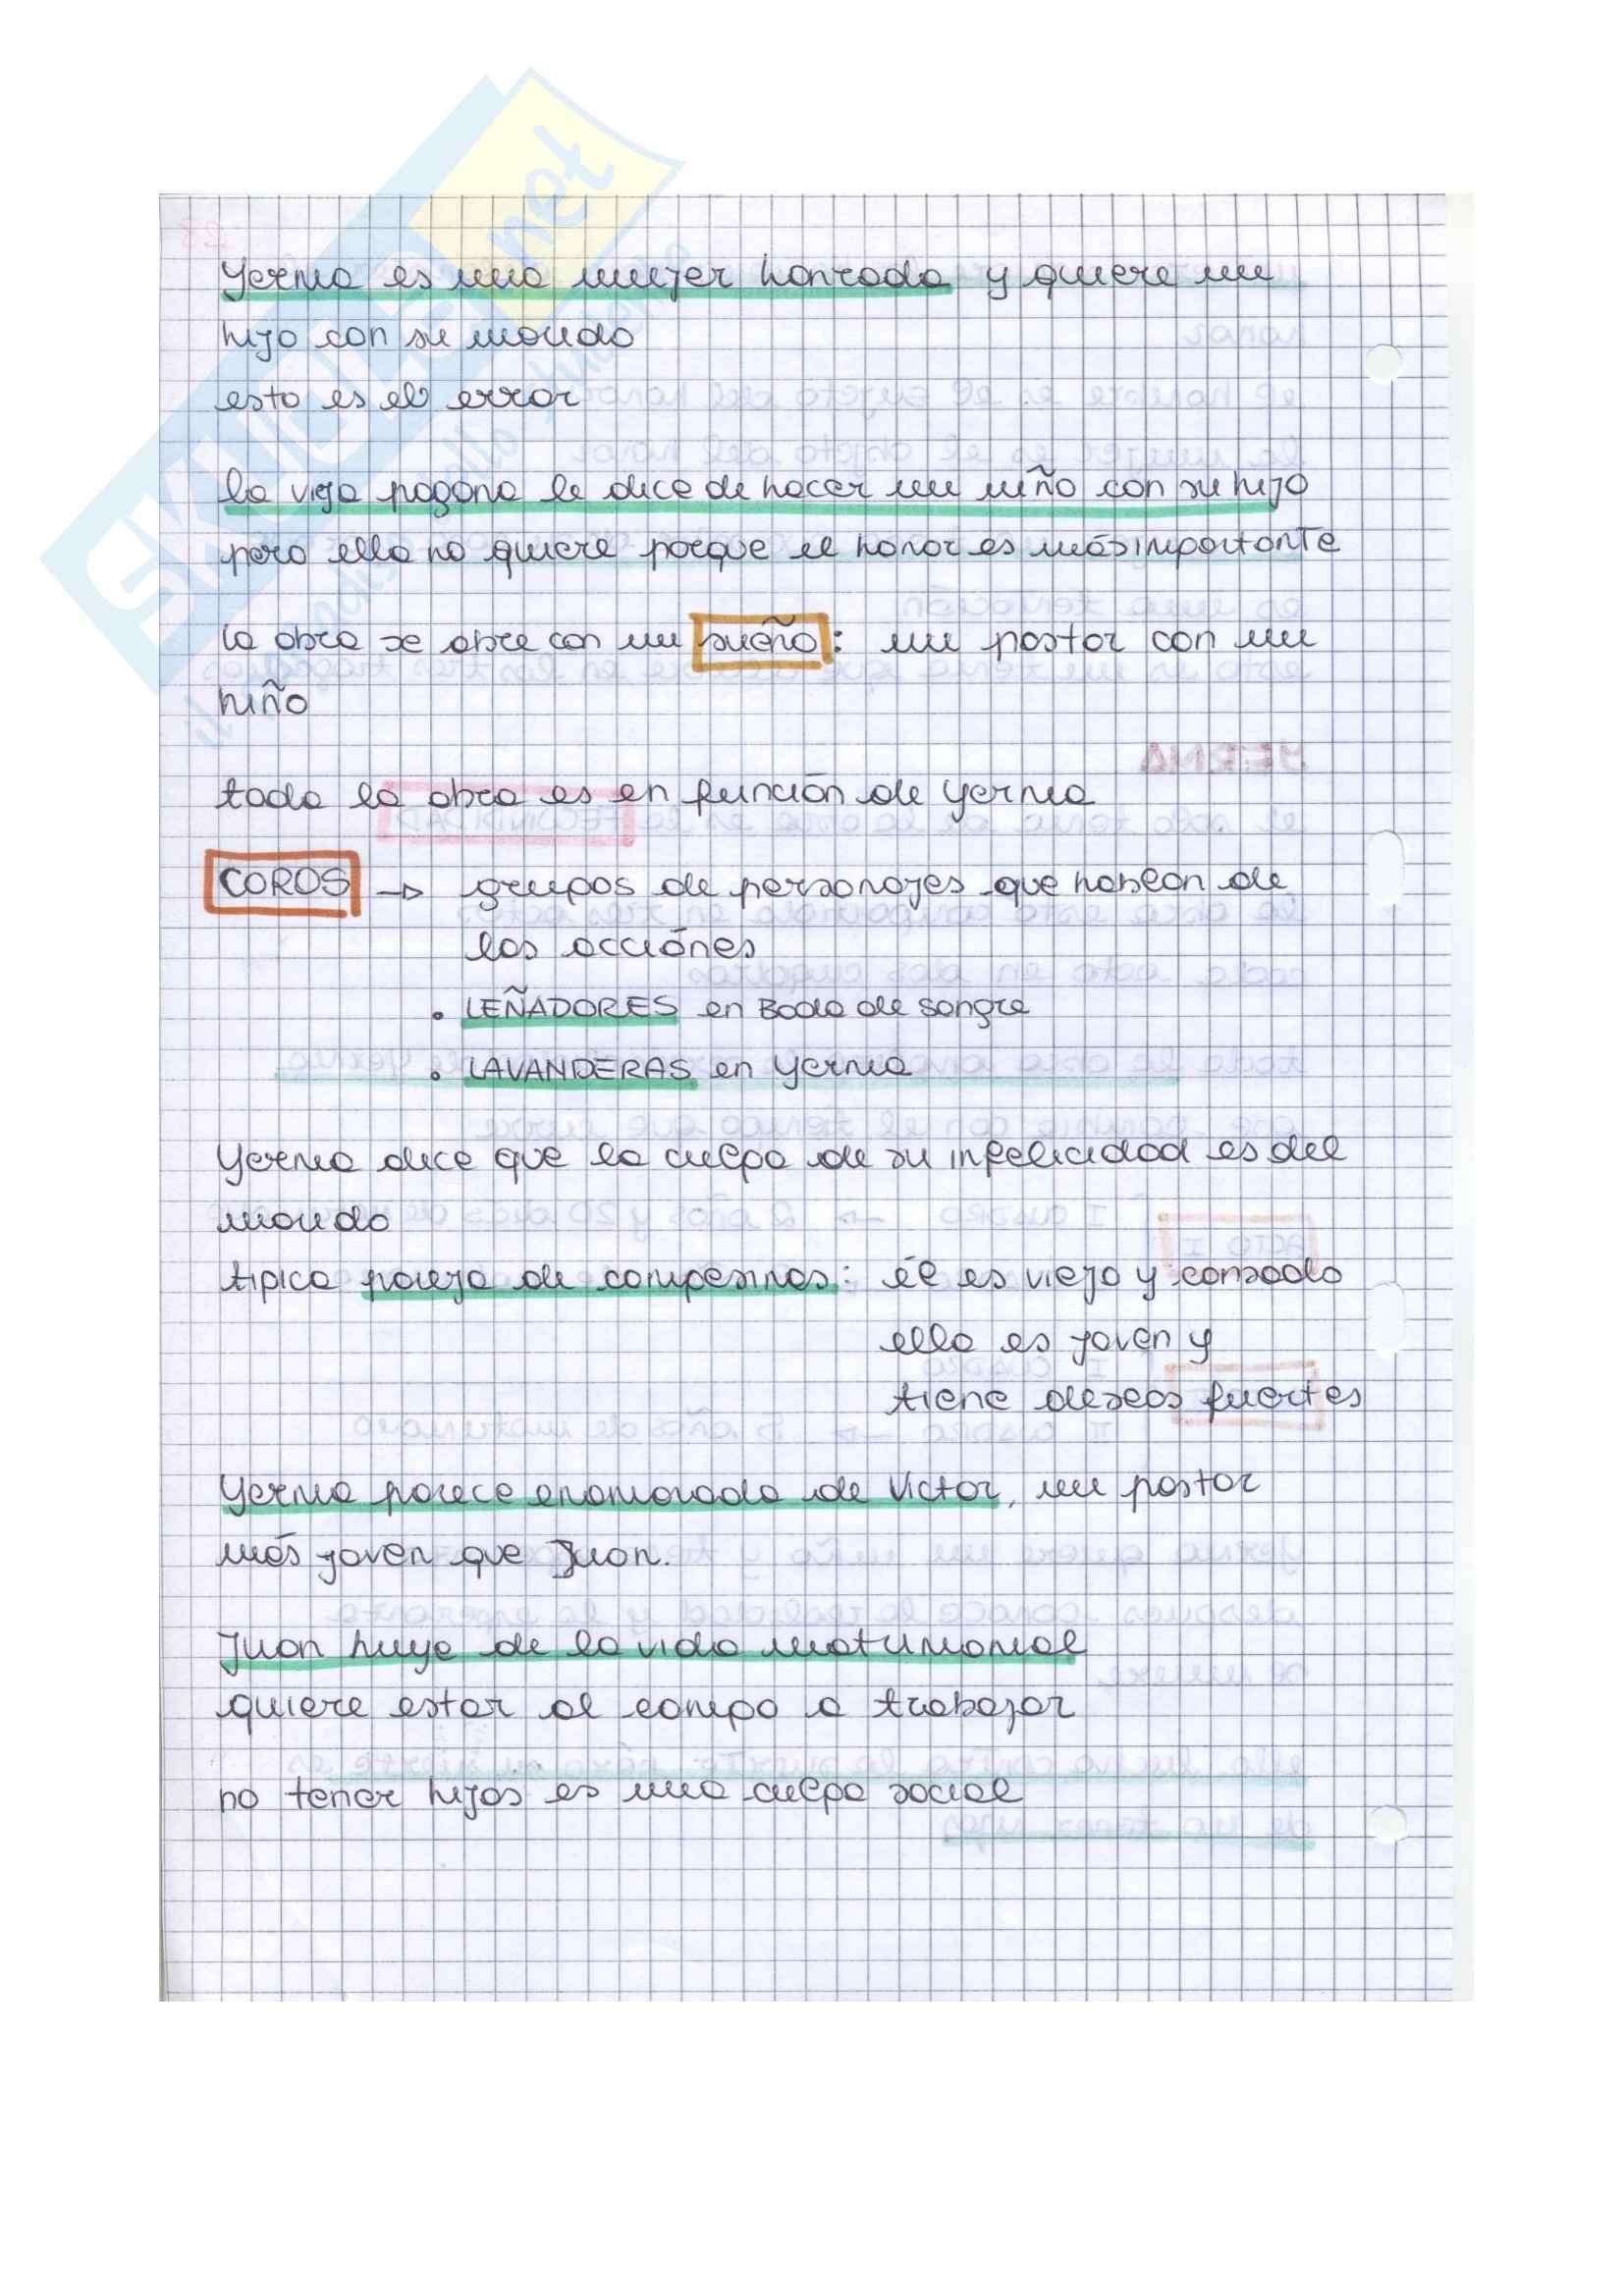 SKUOLA.net
il paradiso dello studente
Yerma es una mujer honrada y quiere un
hijo con su marido
esto es el error
la vieja pagana le dice de hacer un niño con su hijo
pero ella no quiere porque el honor es más importante
la obra se abre con un sueño: un pastor con un
niño
toda la obra es en función de Yerma
COROS → grupos de personajes que hablan de
las acciónes
• LEÑADORES en Boda de Sangre
• LAVANDERAS en Yerma
Yerma dice que la culpa de su infelicidad es del
marido
tipica pareja de campesinos: él es viejo y cansado
ella es joven y
tiene deseos fuertes
Yerma parece enamorada de Victor, un pastor
más joven que Juan.
Juan huye de la vida matrimonial
quiere estar al campo a trabajar
no tener hijos es una culpa social